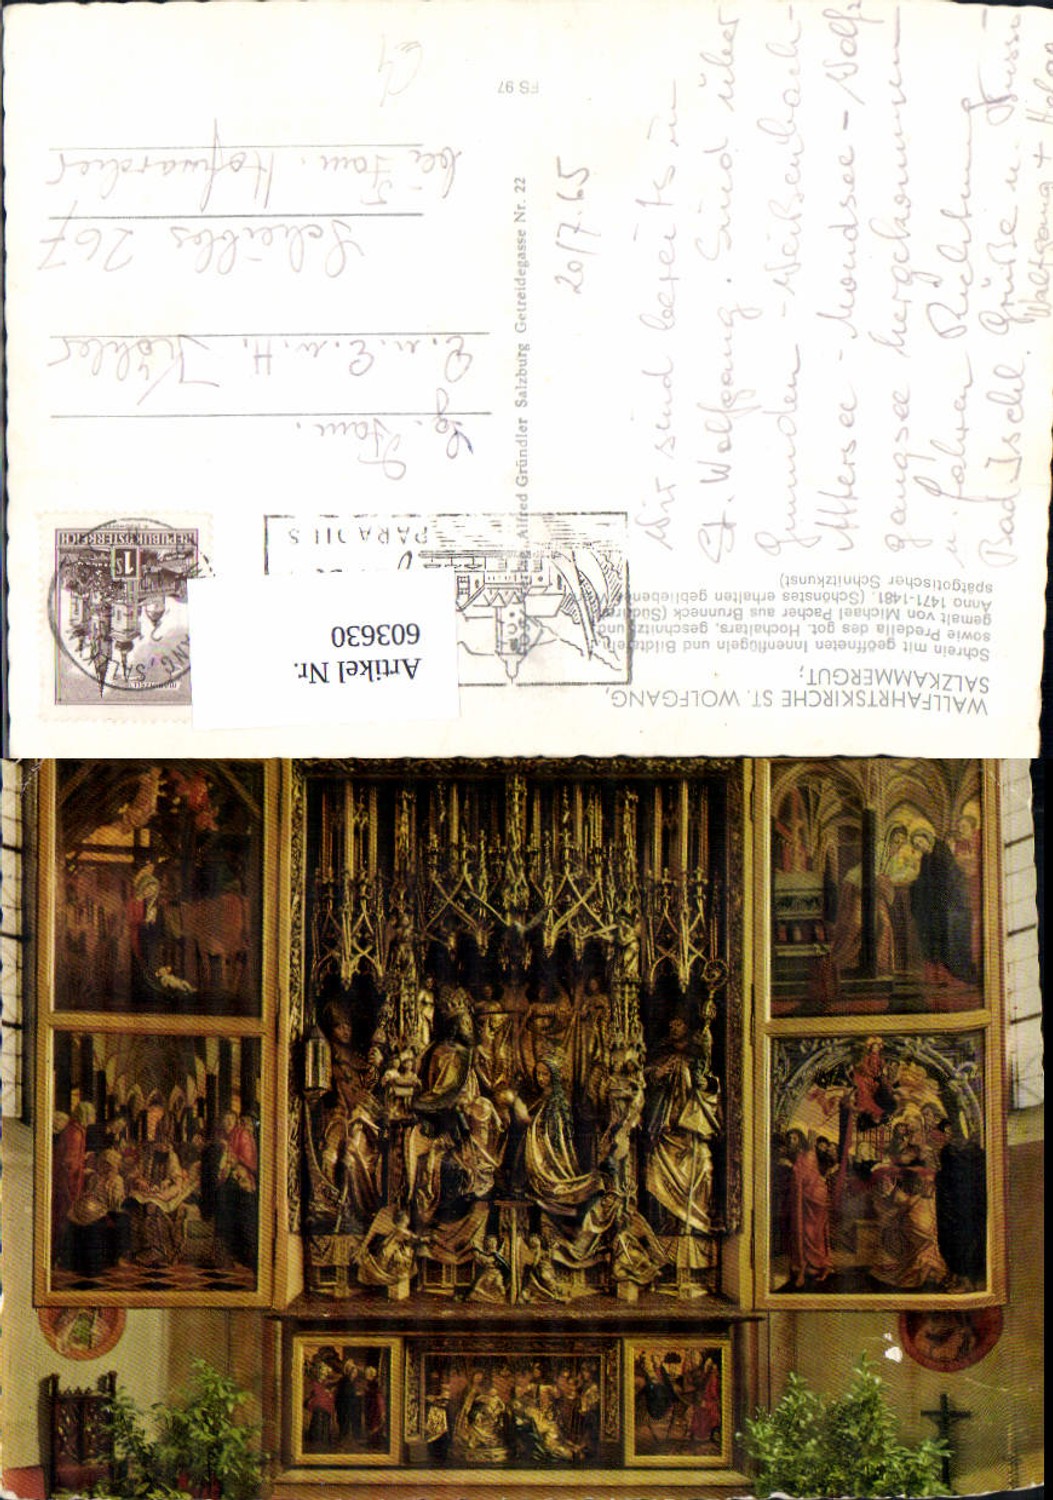 WALLFAHRTSKIRCHE ST. WOLFGANG,
SALZKAMMERGUT;
Schrein mit geöffneten Innenflügeln und Bildtafeln
sowie Predella des got. Hochaltars, geschnitzt und
gemalt von Michael Pacher aus Brunneck (Südtirol)
Anno 1471-1481. (Schönstes erhalten gebliebenes
spätgotischer Schnitzkunst)
Artikel Nr.
603630
PARADIES
REPUBLIK ÖSTERREICH
1 S
Verlag Alfred Gründler Salzburg Getreidegasse Nr. 22
FS 97
20/7.65
Wir sind bereits in
St. Wolfgang. Sind über
Gmunden - Weißenbach -
Attersee - Mondsee - Wolf-
gangsee hergekommen
u. fahren Richtung
Bad Ischl. Grüße u.
Wolfgang + Helga
Fam.
E. u. E. u. H. Köhler
Scheibbs 267
bei Fam. Hofmarcher